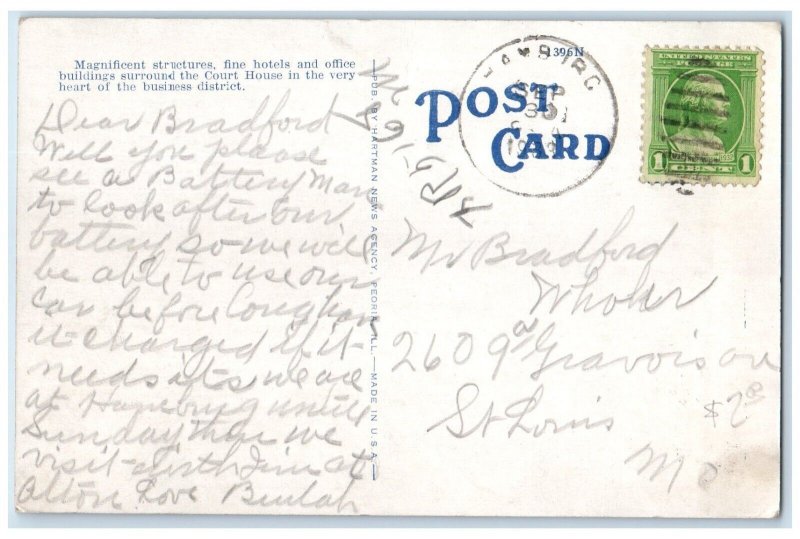 Magnificent structures, fine hotels and office
buildings surround the Court House in the very
heart of the business district.
Dear Bradford
Will you please
see a Battery Man
to look after our
battery so we will
be able to use our
car before long han
it charged if it
needs it we are
at Hamburg until
Sunday than we
visit with Jim at
Alton Love Beulah
PUB. BY HARTMAN NEWS AGENCY, PEORIA, ILL. — MADE IN U.S.A.
1396N
POST
CARD
HAMBURG
SEP
30
POSTAGE
1 1
Mr Bradford
Whoher
2609a Gravois ave
St Louis
Mo
$7.00